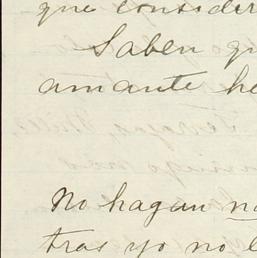 que consider
Saben qu
amante he
No hagan na
tras yo no l